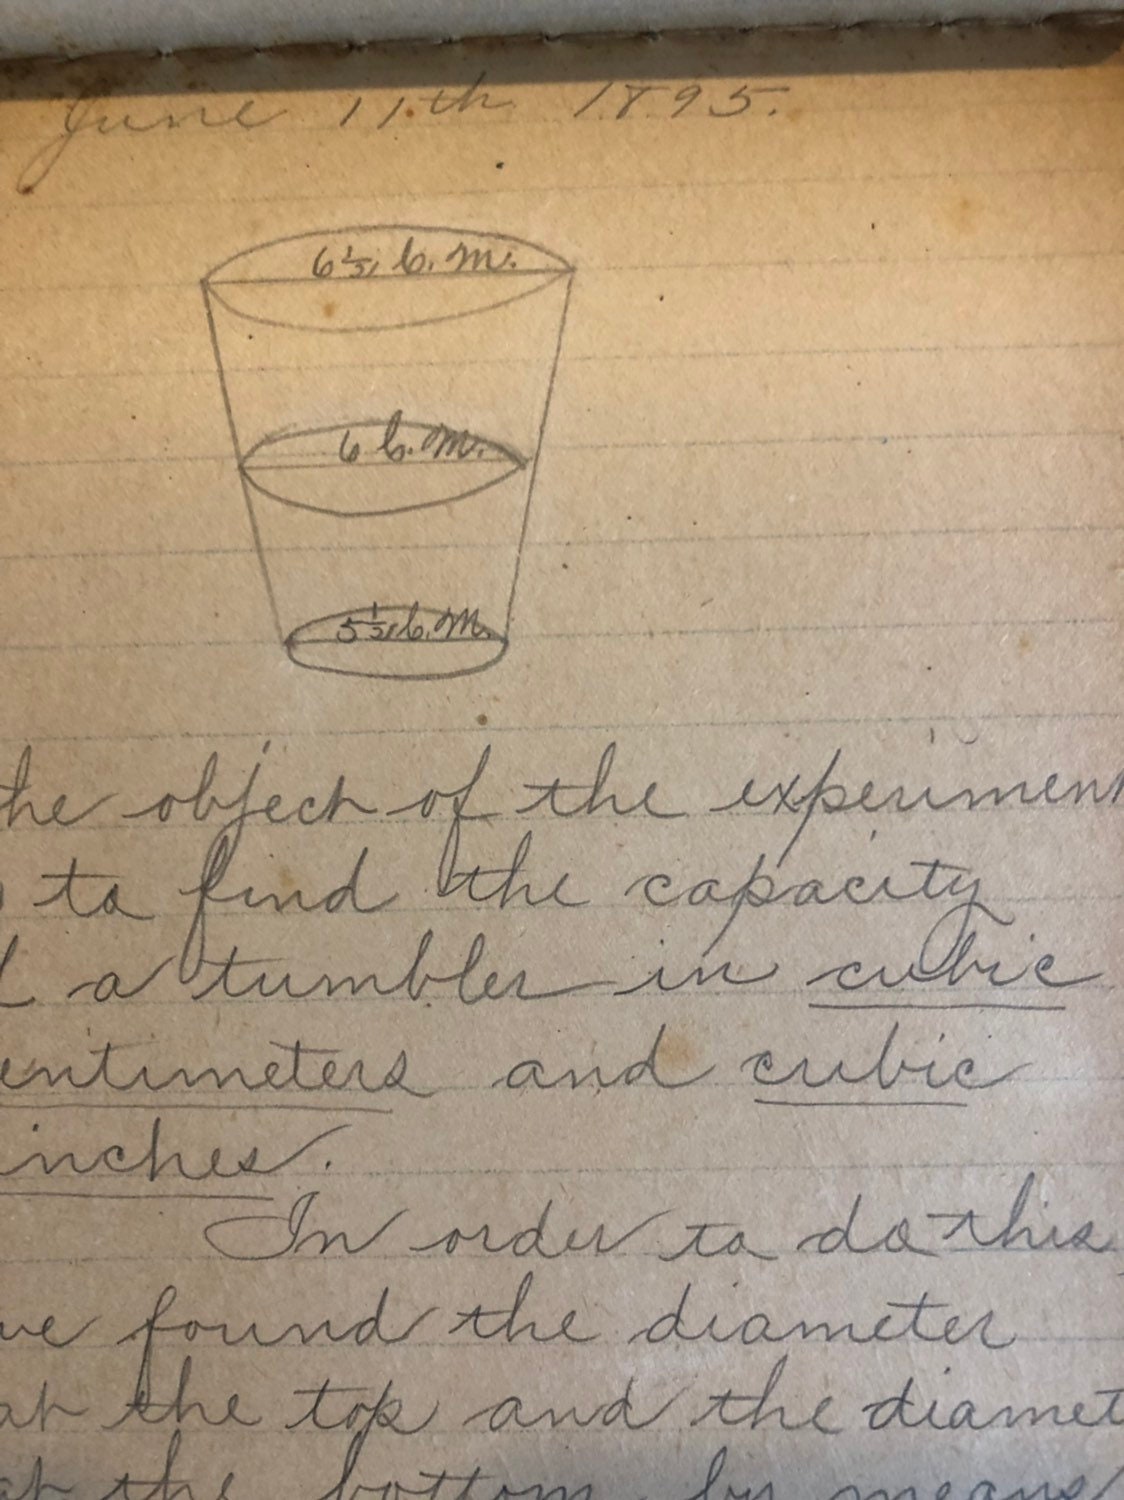 June 11th 1895.
6 1/2 c.m.
6 c.m.
5 1/2 c.m.
he object of the experiment
to find the capacity
a tumbler in cubic
entimeters and cubic
inches.
In order to do this
we found the diameter
at the top and the diamet
at the bottom by means